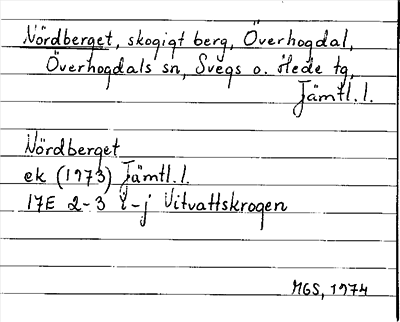 Nördberget, skogigt berg, Överhogdal,
Överhogdals sn, Svegs o. Hede tg,
Jämtl. l.
Nördberget
ek (1973) Jämtl. l.
17E 2-3 i-j Vitvattskrogen
MGS, 1974